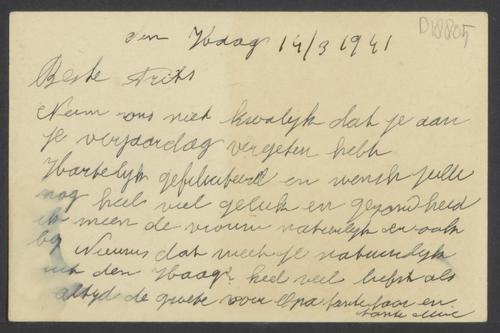 D18805
den Haag 14/3 1941
Beste Frits
Neem ons niet kwalijk dat je aan
je verjaardag vergeten hebt
Hartelijk gefiliciteerd en wensch jullie
nog heel veel geluk en gezondheid
ik meen de vrouw natuurlijk er ook
bij Nieuws dat weet je natuurlijk
uit den Haag. heel veel liefs als
altijd de groete voor Opa tante en
tante